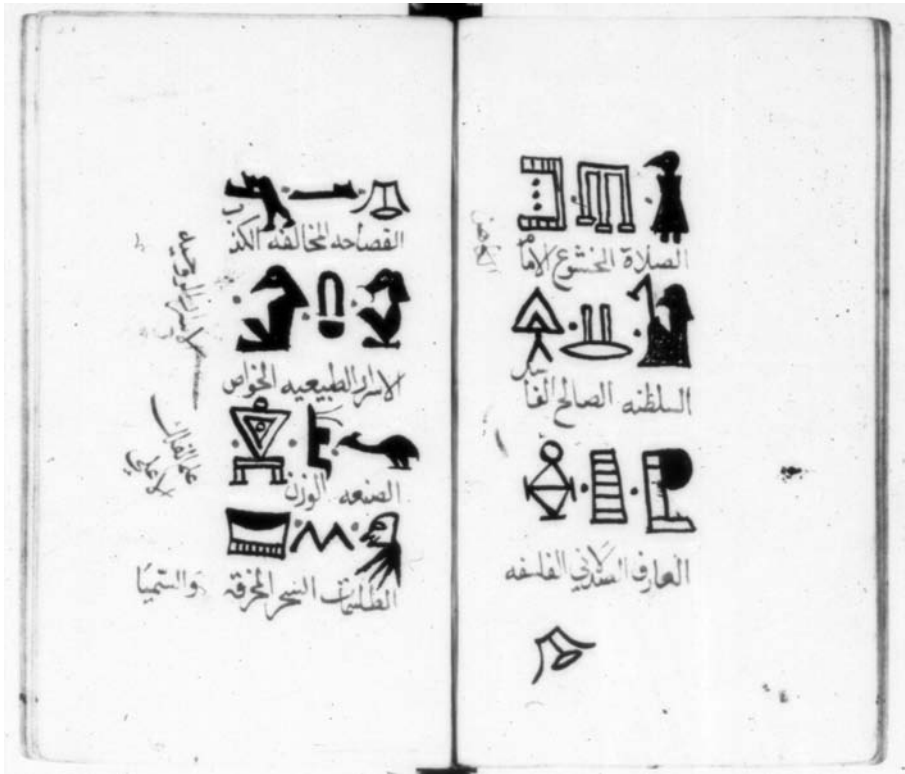 الصلاة الخشوع الامام
السلطنه الصالح الفا
العارف الفلسفه
الفصاحه المخالفه الكذب
الاسرار الطبيعيه الخواص
الصنعه الوزن
الطلسمات السحر المخرقه والسيميا
علم الفلك
الاعلي